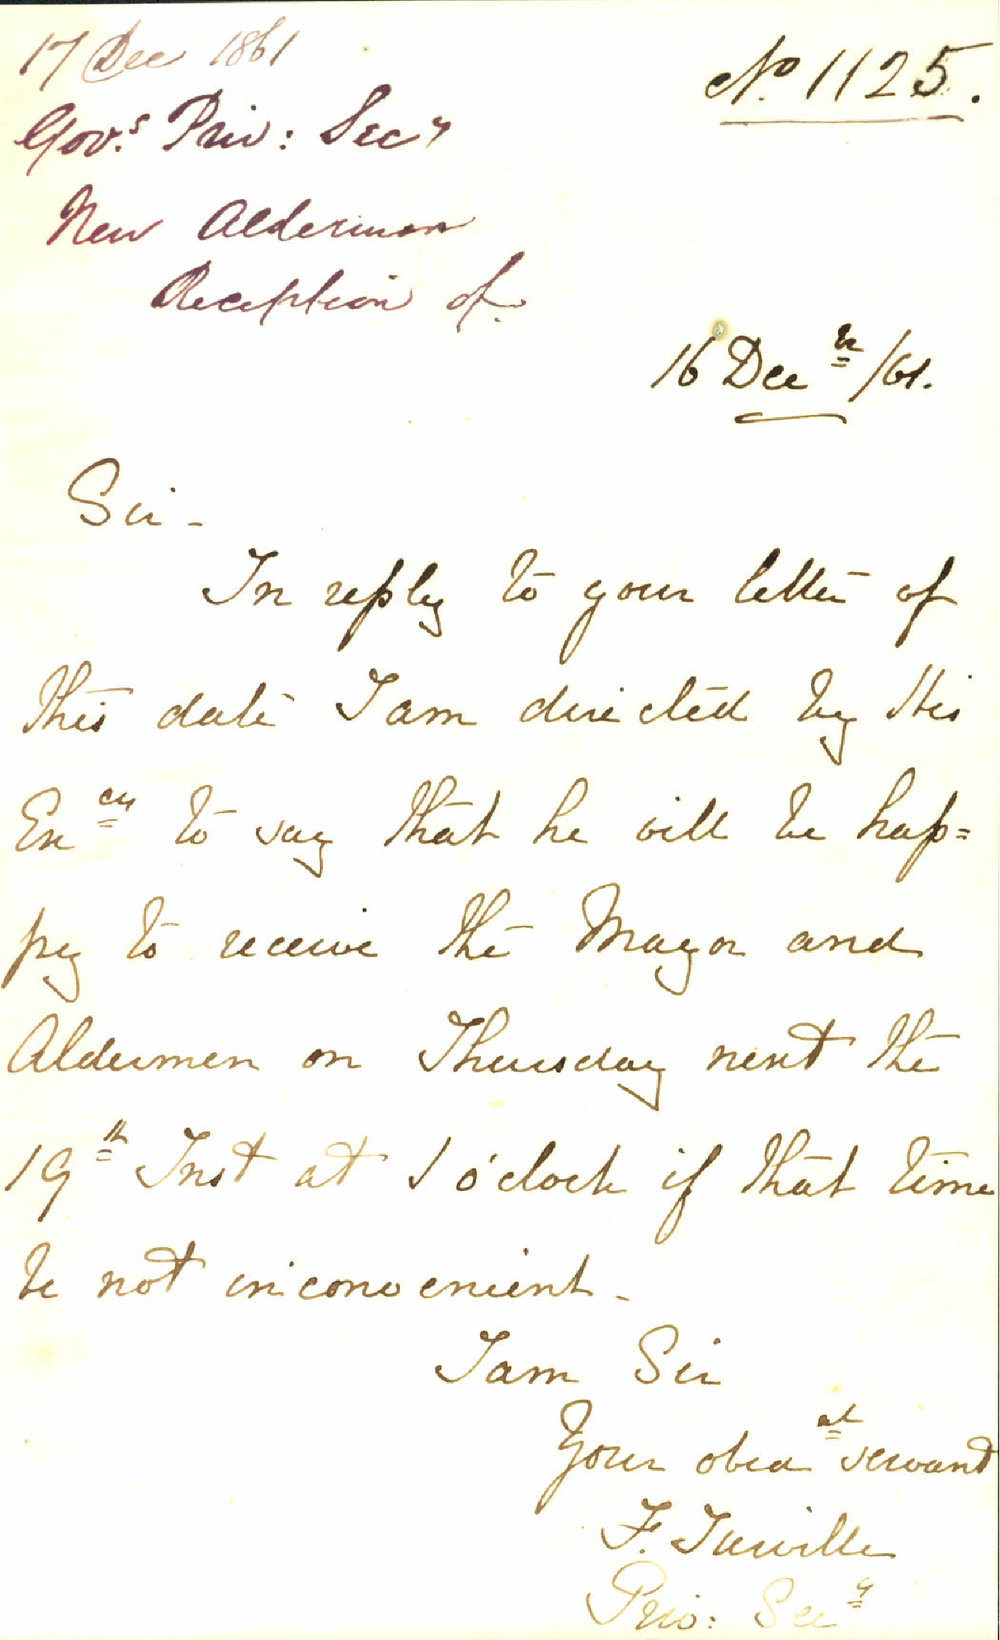 17 Dec 1861
No. 1125.
Gov.s Priv: Secy
New Alderman
Reception of.
16 Decr /61.
Sir -
In reply to your letter of
this date I am directed by His
Excy to say that he will be hap=
py to receive the Mayor and
Aldermen on Thursday next the
19th Inst at 1 o'clock if that time
be not inconvenient -
I am Sir
Your obedt servant
F. Turville
Priv: Secy